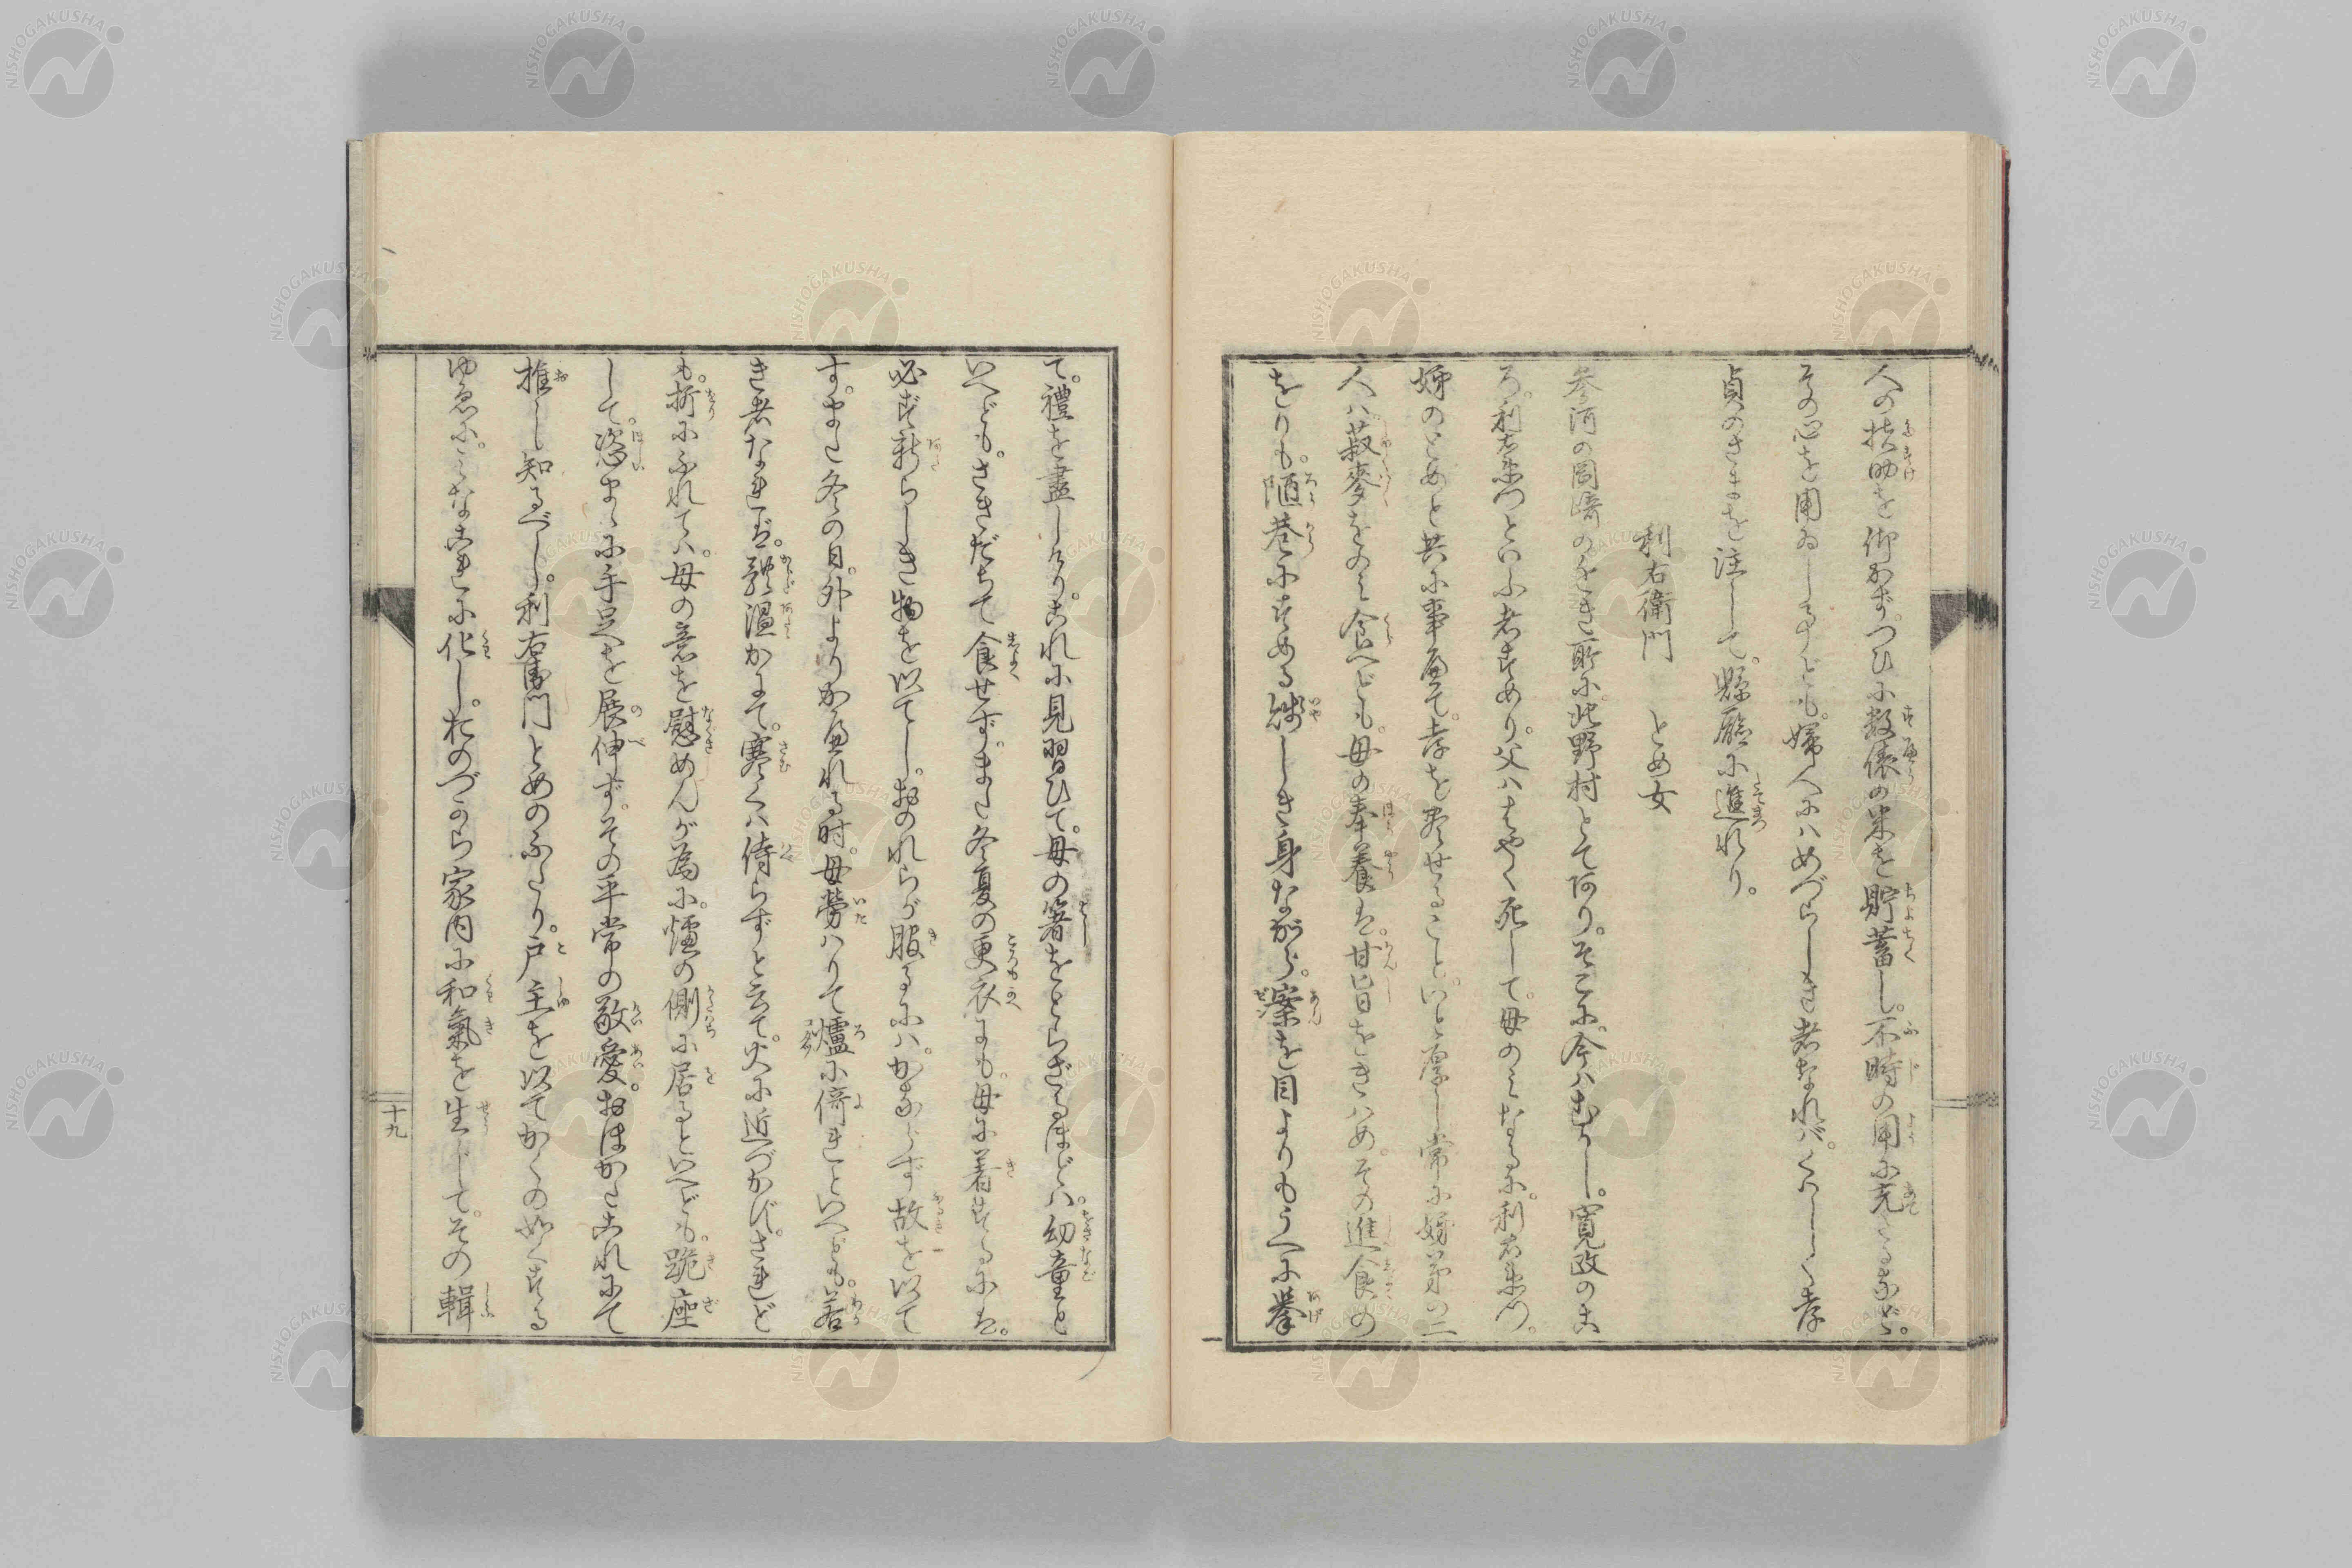 人の扶助を仰かず。つひに数俵の米を貯蓄し。不時の用に充たるなど。
その心を用ゐし事ども。婦人にハめづらしき者なれバ。くハしく孝
貞のさまを注して。縣廳に進れり。
利右衛門　とめ女
参河の岡﨑のちかき所に。北野村とて阿り。そこに。今ハむかし。寛政のこ
ろ。利右衛門といふ者すめり。父ハはやく死して。母のミなるに。利右衛門。
姉のとめと共に事へて。孝を尽せること。いと厚し常に姉弟の二
人ハ。菽麥をのミ食へども。母の奉養は。甘旨をきハめ。その進食の
をりも。陋巷にすめる賤しき身ながら。案を目よりもうへに挙
て。禮を盡しけり。これに見習ひて。母の箸をとらざるほどハ。幼童と
いへども。さきだちて食せず。また冬夏の更衣にも。母に着するには。
必ず新らしき物を以てし。おのれらが服るにハ。かならず故を以て
す。また冬の日。外よりかへれる時。母勞ハりて爐に倚れといへども。若
き者なれば。體温かにて。寒くハ侍らずと言て。火に近づかず。されど
も。折にふれてハ。母の意を慰めんが為に。爐の側に居るといへども。跪座
して。恣まゝに手足を展伸ず。その平常の敬愛。おほかたこれにて
推し知るべし。利右衛門とめのふたり。戸主を以てかくの如くする
ゆゑに。ミなこれに化し。おのづから家内に和氣を生じて。その輯
十九
NISHOGAKUSHA